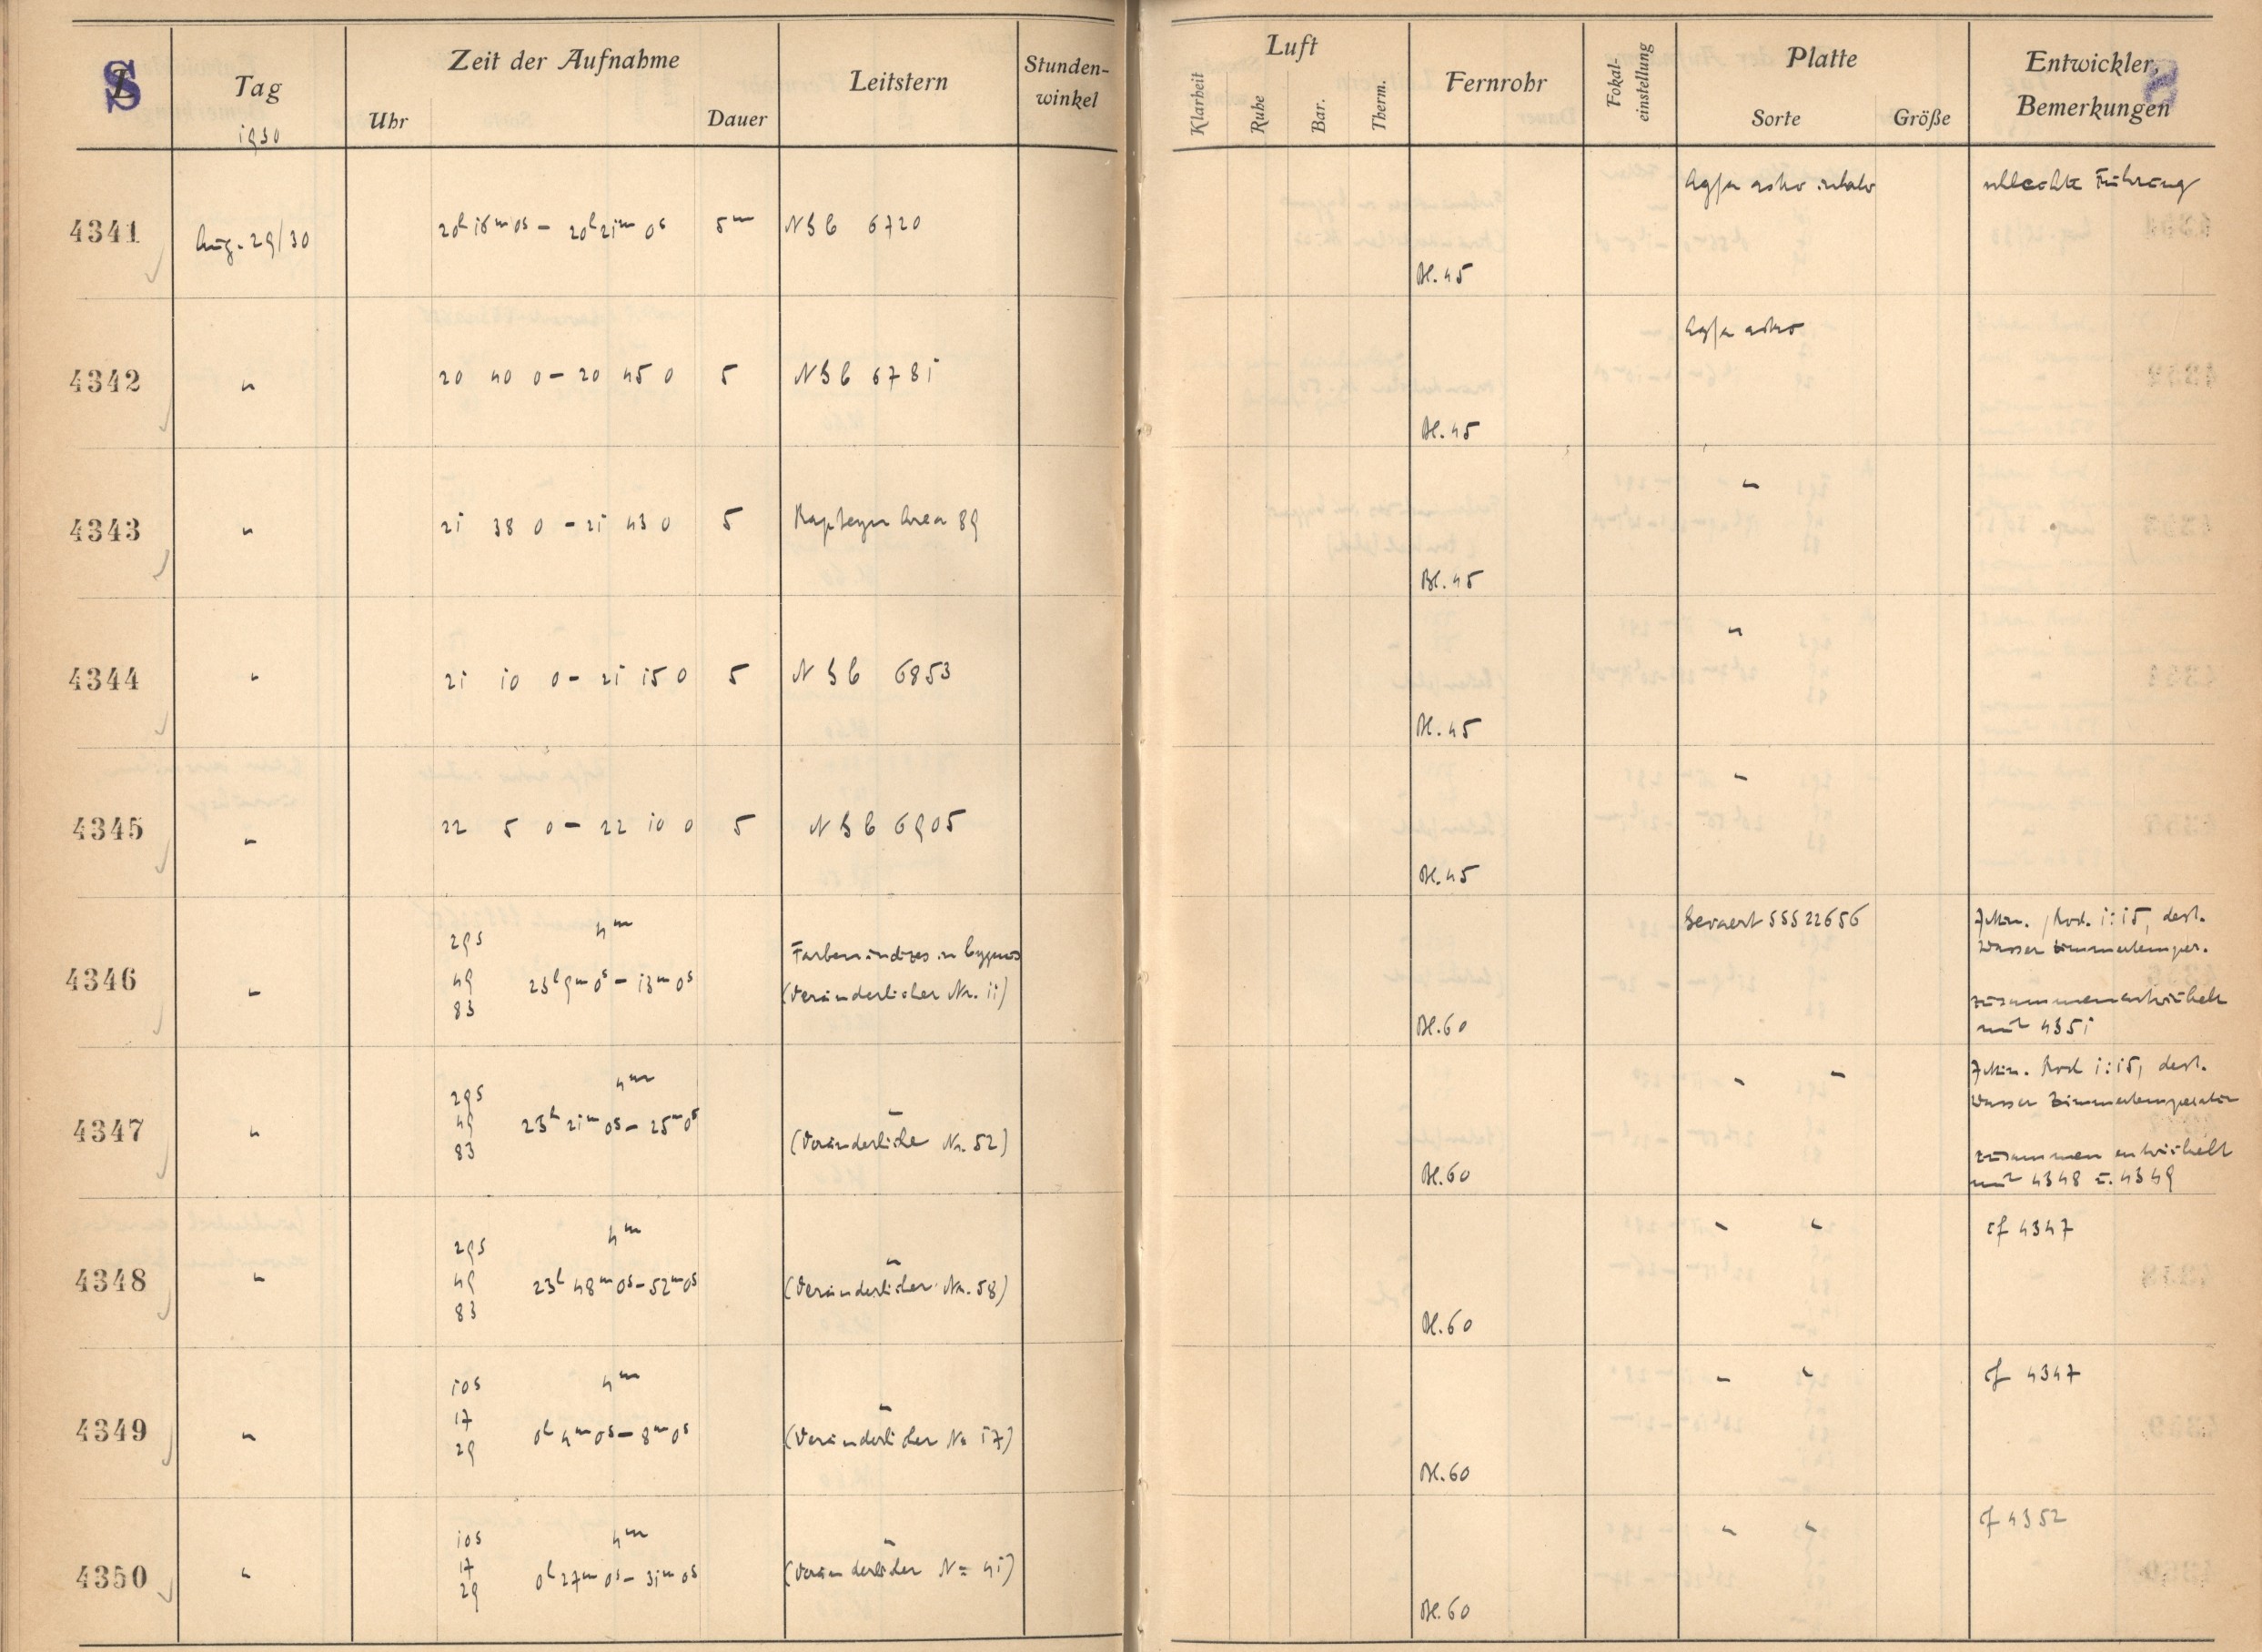 S
Tag
1930
Zeit der Aufnahme
Uhr
Dauer
Leitstern
Stunden-
winkel
Luft
Klarheit
Ruhe
Bar.
Therm.
Fernrohr
Fokal-
einstellung
Platte
Sorte
Größe
Entwickler,
Bemerkungen
4341
Aug. 29/30
20h 16m 0s – 20h 21m 0s
5m
NGC 6720
Bl. 45
Agfa astro
schlechte Führung
4342
"
20 40 0 – 20 45 0
5
NGC 6781
Bl. 45
Agfa astro
4343
"
21 38 0 – 21 43 0
5
Kapteyn Area 89
Bl. 45
"
4344
"
21 10 0 – 21 15 0
5
NGC 6853
Bl. 45
"
4345
"
22 5 0 – 22 10 0
5
NGC 6905
Bl. 45
"
4346
"
29s
49
83
4m
23h 9m 0s – 13m 0s
Farbenindizes in Cygnus
(Veränderlicher Nr. 11)
Bl. 60
Gevaert SSS 22656
7 Min. Rod. 1:15, dest.
Wasser Zimmertemper.
zusammenentwickelt
mit 4351
4347
"
29s
49
83
4m
23h 21m 0s – 25m 0s
"
(Veränderlicher Nr. 52)
Bl. 60
" "
7 Min. Rod 1:15, dest.
Wasser Zimmertemperatur
zusammen entwickelt
mit 4348 u. 4349
4348
"
29s
49
83
4m
23h 48m 0s – 52m 0s
"
(Veränderlicher Nr. 58)
Bl. 60
" "
cf 4347
4349
"
10s
17
29
4m
0h 4m 0s – 8m 0s
"
(Veränderlicher No 17)
Bl. 60
" "
cf 4347
4350
"
10s
17
29
4m
0h 27m 0s – 31m 0s
"
(Veränderlicher No 41)
Bl. 60
" "
cf 4352